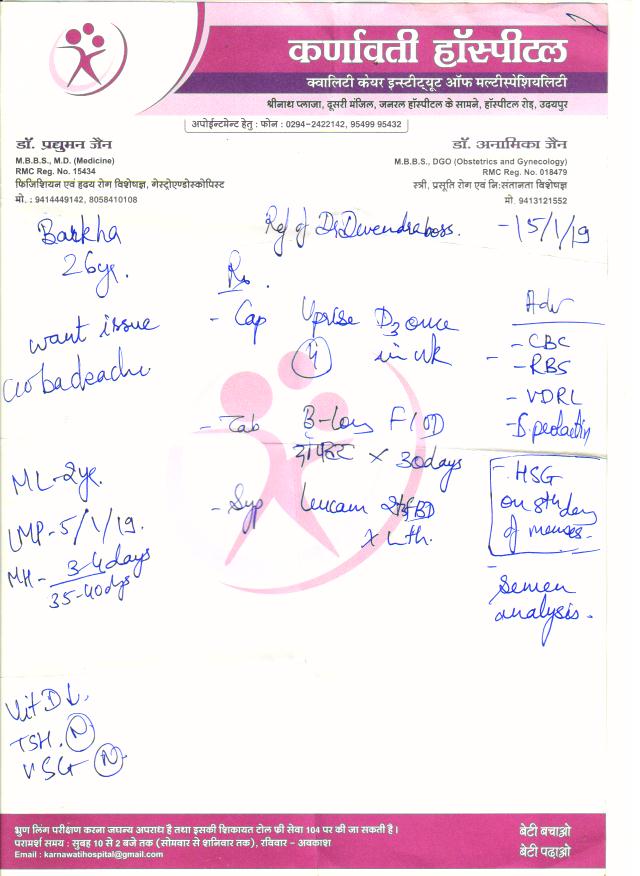 कर्णावती हॉस्पीटल
क्वालिटी केयर इन्स्टीट्यूट ऑफ मल्टीस्पेशियलिटी
श्रीनाथ प्लाजा, दूसरी मंजिल, जनरल हॉस्पीटल के सामने, हॉस्पीटल रोड़, उदयपुर
अपोईन्टमेन्ट हेतु : फोन : 0294-2422142, 95499 95432
डॉ. प्रद्युमन जैन
M.B.B.S., M.D. (Medicine)
RMC Reg. No. 15434
फिजिशियन एवं हृदय रोग विशेषज्ञ, गेस्ट्रोएण्डोस्कोपिस्ट
मो. : 9414449142, 8058410108
डॉ. अनामिका जैन
M.B.B.S., DGO (Obstetrics and Gynecology)
RMC Reg. No. 018479
स्त्री, प्रसूति रोग एवं नि:संतानता विशेषज्ञ
मो. 9413121552
Barkha
26yr.
Ref of Dr. Devendra boss.
- 15/1/19
want issue
c/o
ML-2yr.
LMP-5/1/19.
MH - 3-4days
35-40dys
Vit D ↓.
TSH. N
USG N
Rx.
- Cap Uprise D3 once
4 in wk
- Tab B-long F 1 OD
x 30days
- Syp BD
Adv
- CBC
- RBS
- VDRL
- S. prolactin
- HSG
on 8th day
of menses.
- Semen
analysis.
भ्रूण लिंग परीक्षण करना जघन्य अपराध है तथा इसकी शिकायत टोल फ्री सेवा 104 पर की जा सकती है।
परामर्श समय : सुबह 10 से 2 बजे तक (सोमवार से शनिवार तक), रविवार - अवकाश
Email : karnawatihospital@gmail.com
बेटी बचाओ
बेटी पढ़ाओ